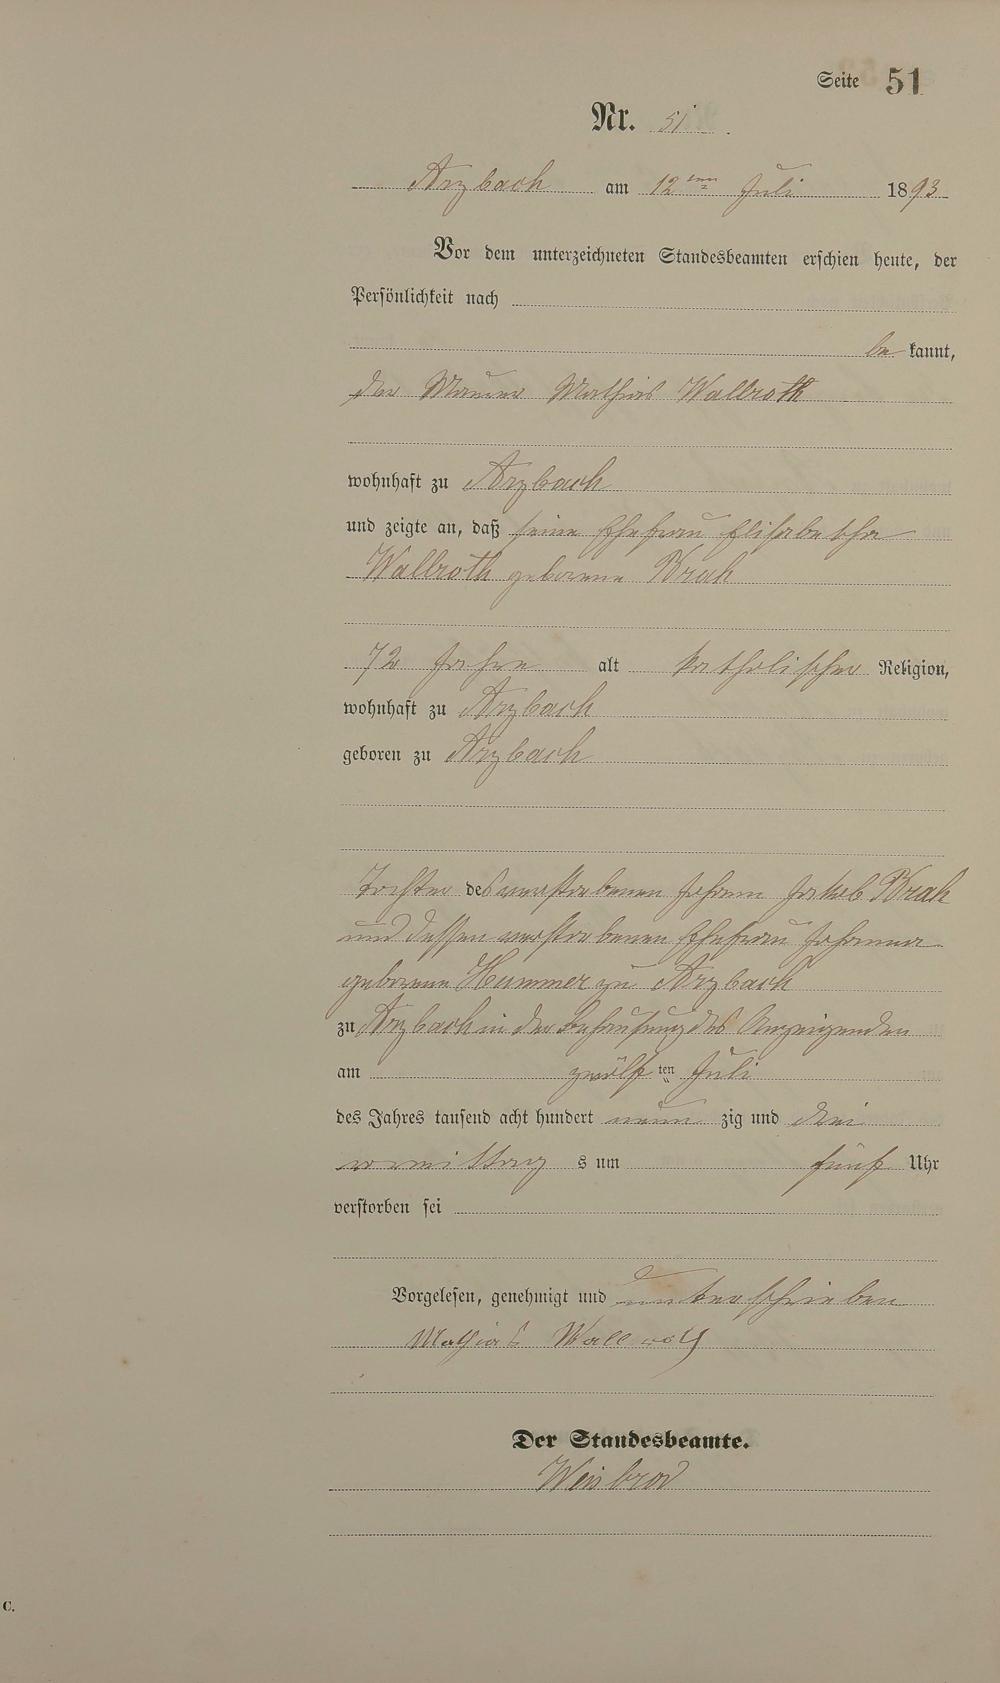 Seite 51
Nr. 51.
Arzbach am 12ten Juli 1893
Vor dem unterzeichneten Standesbeamten erschien heute, der
Persönlichkeit nach
be kannt,
der Maurer Mathias Wallroth
wohnhaft zu Arzbach
und zeigte an, daß seine Ehefrau Elisabetha
Wallroth geborene Brah
72 Jahre alt katholischer Religion,
wohnhaft zu Arzbach
geboren zu Arzbach
Tochter des verstorbenen Johann Jakob Brah
und dessen verstorbenen Ehefrau Johanna
geborene Hummer zu Arzbach
zu Arzbach in der Behausung des Anzeigenden
am zwölf ten Juli
des Jahres tausend acht hundert neun zig und drei
vormittag s um fünf Uhr
verstorben sei
Vorgelesen, genehmigt und unterschrieben
Mathias Wallroth
Der Standesbeamte.
Weisbrod
C.